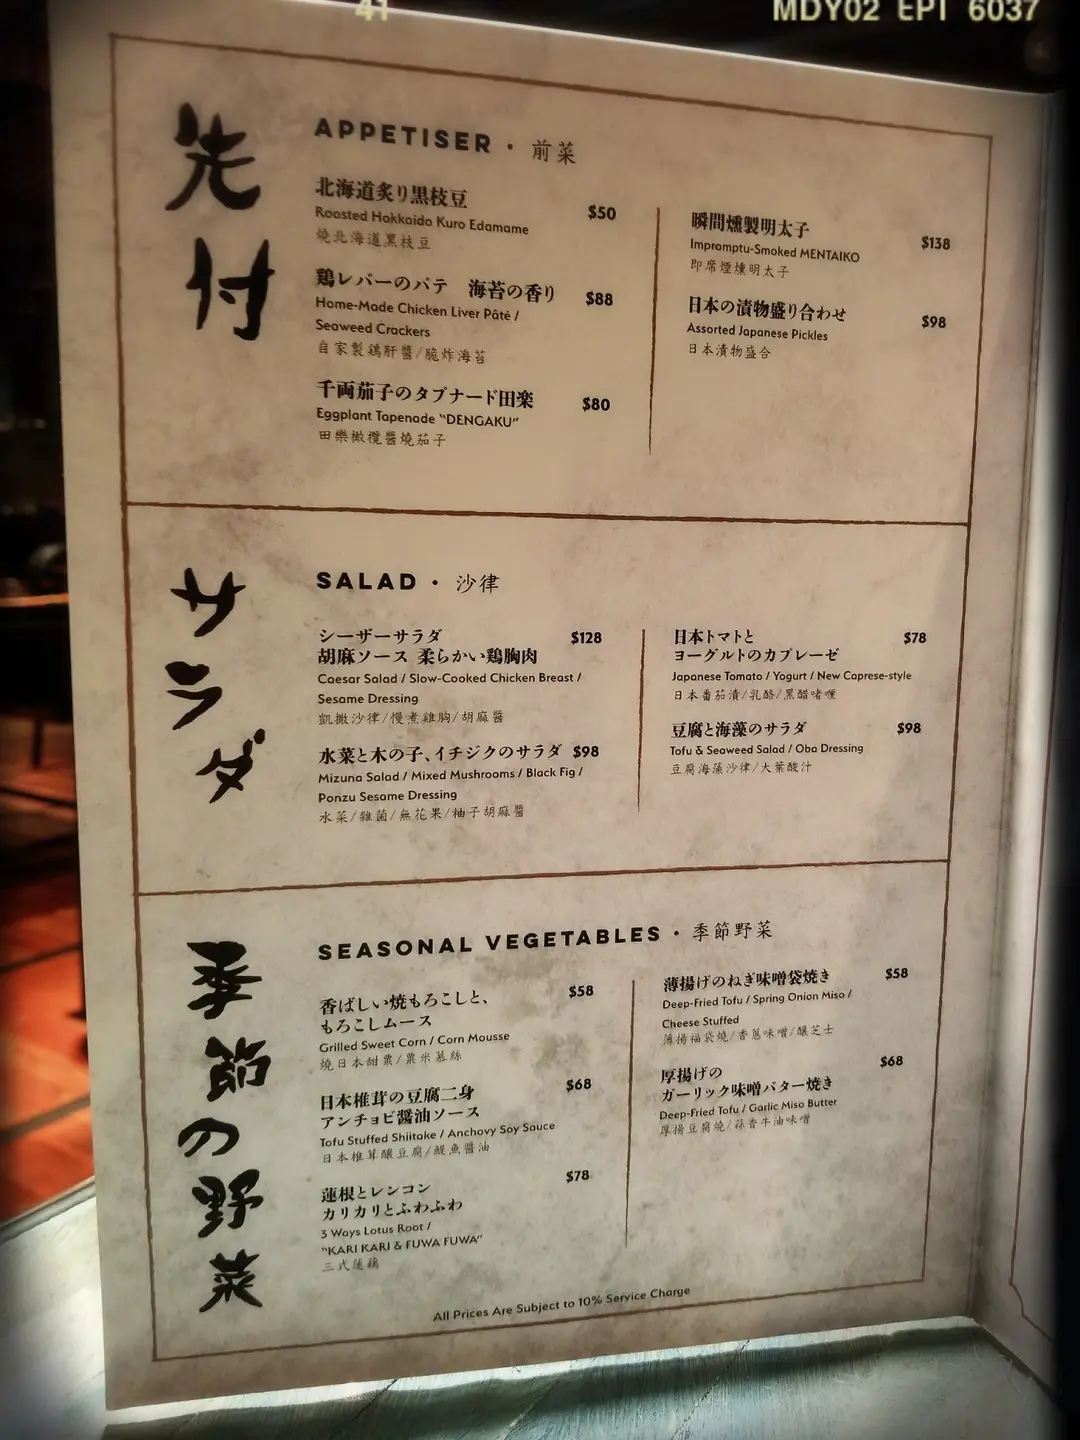 41
MDY02 EPI 6037
先付
APPETISER・前菜
北海道炙り黒枝豆
$50
Roasted Hokkaido Kuro Edamame
燒北海道黑枝豆
鶏レバーのパテ 海苔の香り
$88
Home-Made Chicken Liver Pâté /
Seaweed Crackers
自家製鷄肝醬/脆炸海苔
千両茄子のタプナード田楽
$80
Eggplant Tapenade "DENGAKU"
田樂橄欖醬燒茄子
瞬間燻製明太子
$138
Impromptu-Smoked MENTAIKO
即席煙燻明太子
日本の漬物盛り合わせ
$98
Assorted Japanese Pickles
日本漬物盛合
サラダ
SALAD・沙律
シーザーサラダ
$128
胡麻ソース 柔らかい鶏胸肉
Caesar Salad / Slow-Cooked Chicken Breast /
Sesame Dressing
凱撒沙律/慢煮雞胸/胡麻醬
水菜と木の子、イチジクのサラダ $98
Mizuna Salad / Mixed Mushrooms / Black Fig /
Ponzu Sesame Dressing
水菜/雜菌/無花果/柚子胡麻醬
日本トマトと
$78
ヨーグルトのカプレーゼ
Japanese Tomato / Yogurt / New Caprese-style
日本番茄漬/乳酪/黑醋啫喱
豆腐と海藻のサラダ
$98
Tofu & Seaweed Salad / Oba Dressing
豆腐海藻沙律/大葉酸汁
季節の野菜
SEASONAL VEGETABLES・季節野菜
香ばしい焼もろこしと、
$58
もろこしムース
Grilled Sweet Corn / Corn Mousse
燒日本甜粟/粟米慕絲
日本椎茸の豆腐二身
$68
アンチョビ醤油ソース
Tofu Stuffed Shiitake / Anchovy Soy Sauce
日本椎茸釀豆腐/鯷魚醬油
蓮根とレンコン
$78
カリカリとふわふわ
3 Ways Lotus Root /
"KARI KARI & FUWA FUWA"
三式蓮藕
薄揚げのねぎ味噌袋焼き
$58
Deep-Fried Tofu / Spring Onion Miso /
Cheese Stuffed
薄揚福袋燒/香蔥味噌/釀芝士
厚揚げの
$68
ガーリック味噌バター焼き
Deep-Fried Tofu / Garlic Miso Butter
厚揚豆腐燒/蒜香牛油味噌
All Prices Are Subject to 10% Service Charge